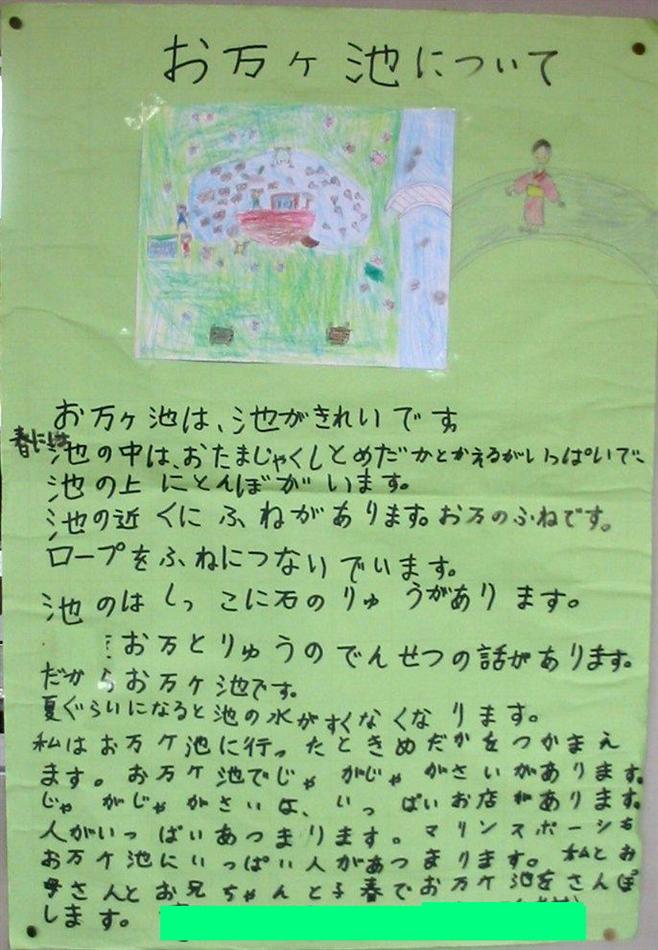 お万ヶ池について
お万ヶ池は、池がきれいです。
春には池の中は、おたまじゃくしとめだかとかえるがいっぱいで、
池の上にとんぼがいます。
池の近くにふねがあります。お万のふねです。
ロープをふねにつないでいます。
池のはしっこに石のりゅうがあります。
お万とりゅうのでんせつの話があります。
だからお万ヶ池です。
夏ぐらいになると池の水がすくなくなります。
私はお万ケ池に行ったときめだかをつかまえ
ます。お万ケ池でじゃがじゃがさいがあります。
じゃがじゃがさいは、いっぱいお店があります。
人がいっぱいあつまります。マリンスポーツも
お万ケ池にいっぱい人があつまります。私とお
母さんとお兄ちゃんと春でお万ケ池をさんぽ
します。